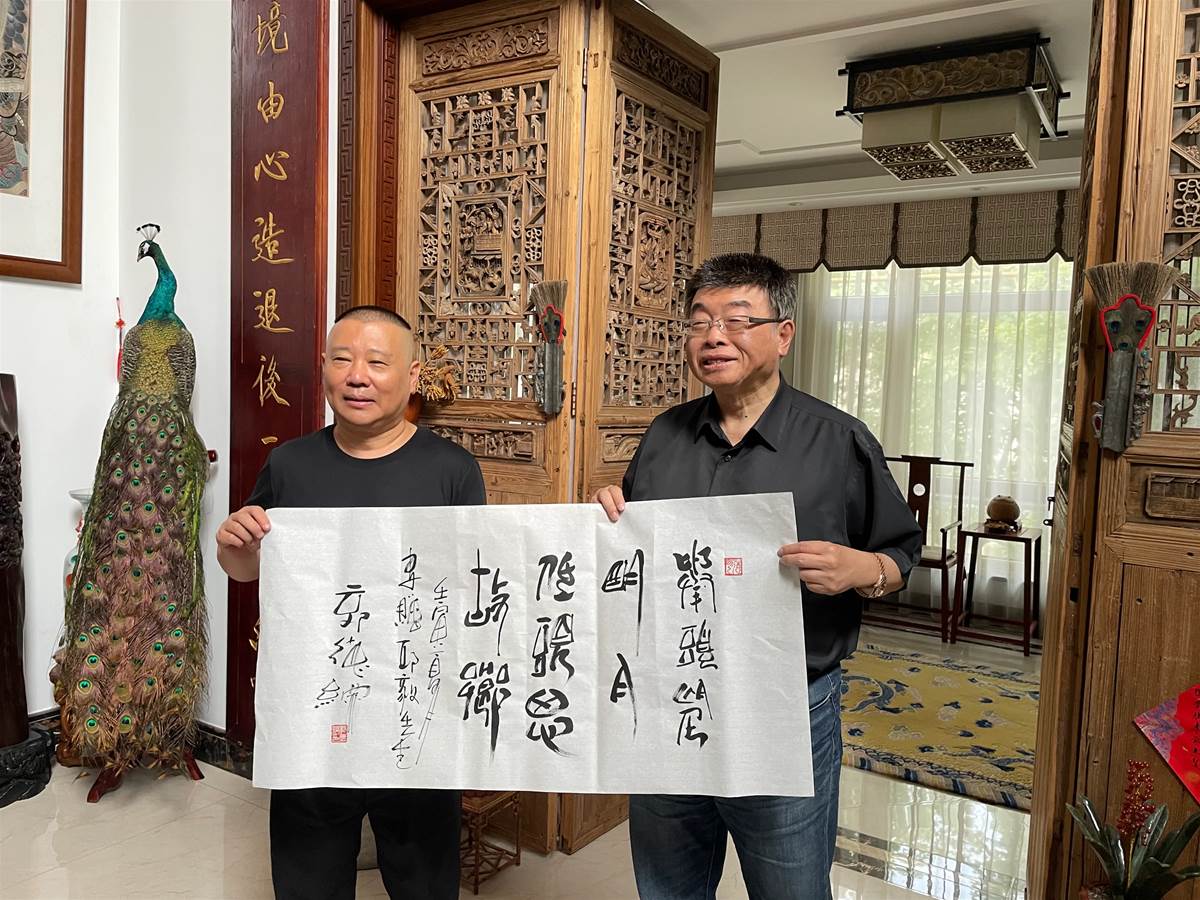 境由心造退後一
舉頭望
明月
低頭思
故鄉
壬寅夏
邱毅先生
郭德綱